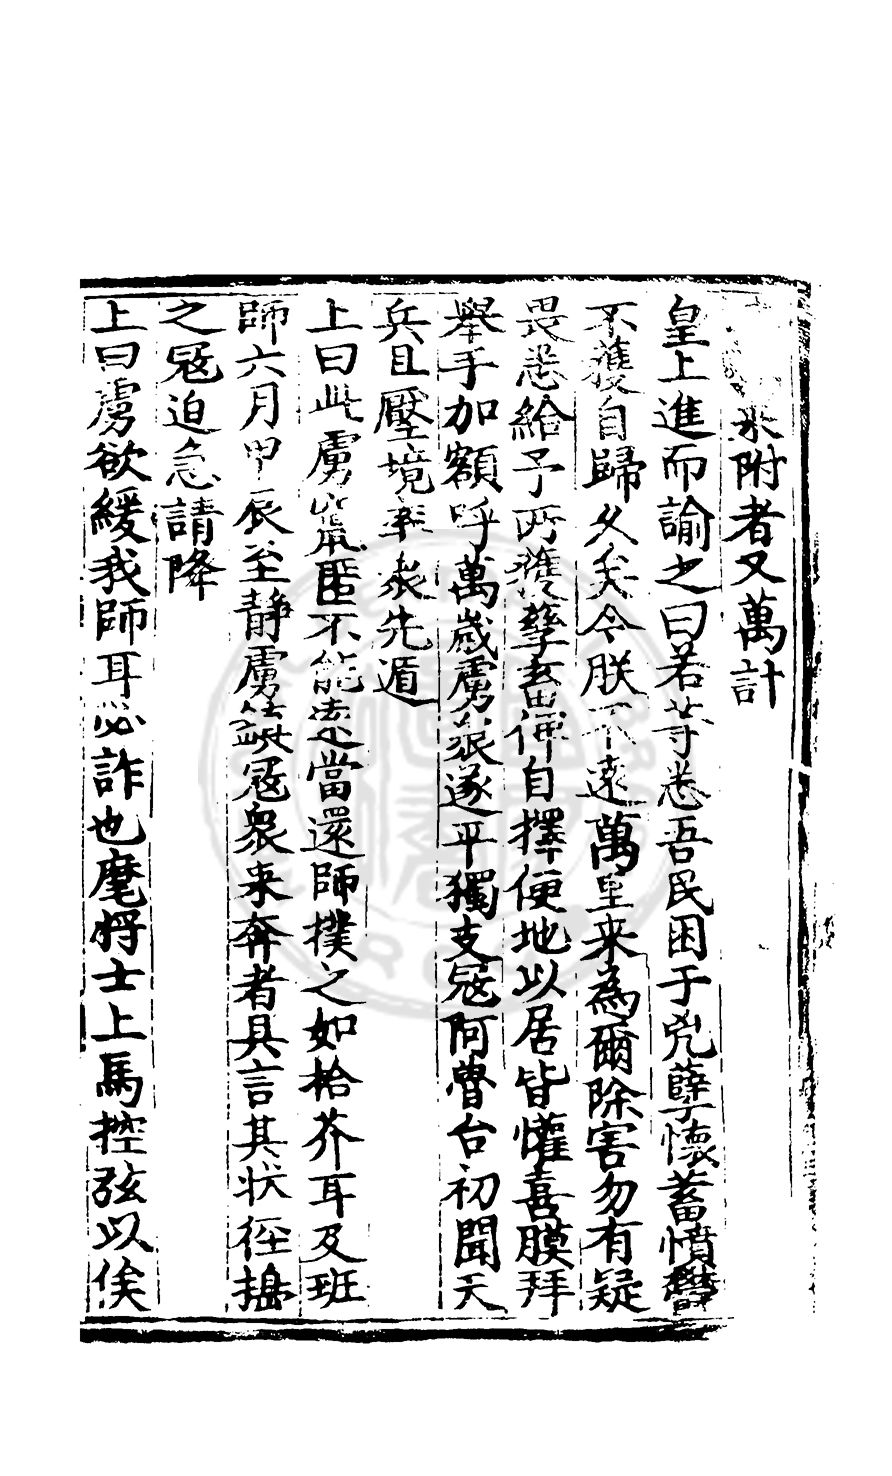 来附者又萬計
皇上進而諭之曰若等悉吾民困于兇孽懷蓄憤鬱
不獲自歸久矣今朕不遠萬里来為爾除害勿有疑
畏悉給予所獲孳畜俾自擇便地以居皆懽喜膜拜
舉手加額呼萬歲虜孽遂平獨支寇阿魯台初聞天
兵且壓境率衆先遁
上曰此虜竄匿不能遠當還師撲之如拾芥耳及班
師六月甲辰至静虜鎮寇衆来奔者具言其状径搗
之寇迫急請降
上曰虜欲緩我師耳必詐也麾将士上馬控弦以俟